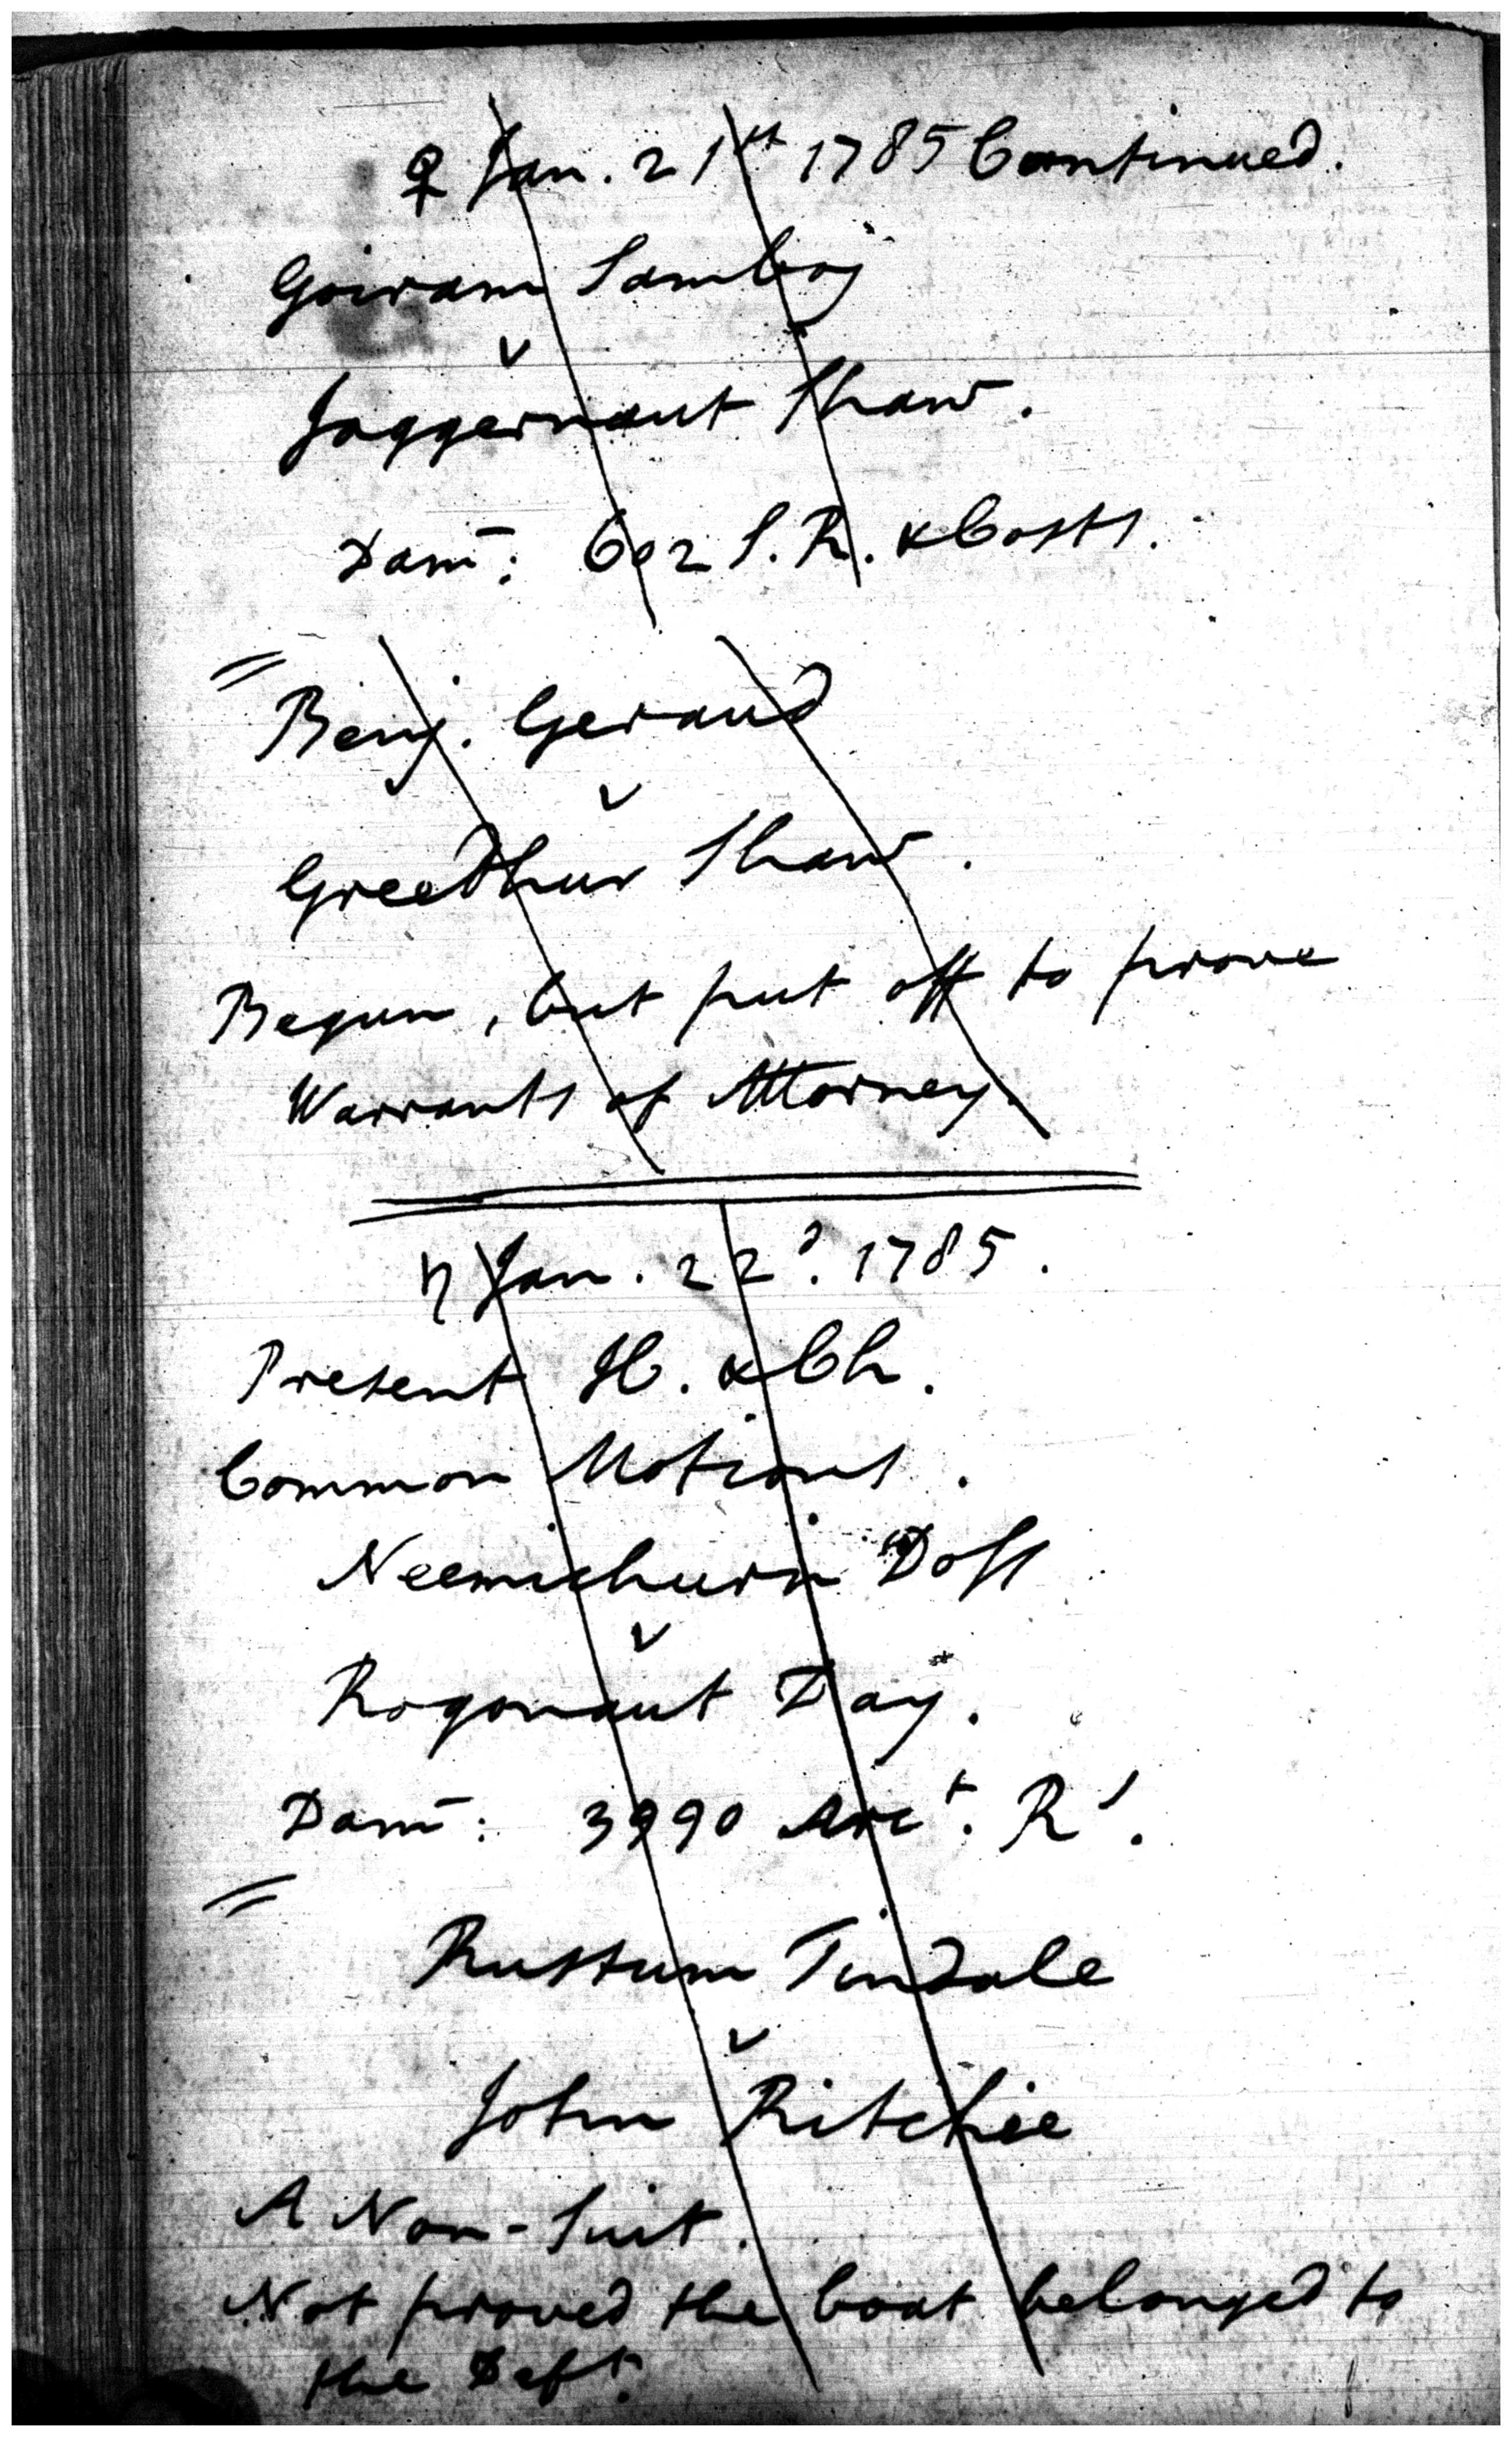 ♀ Jan. 21st 1785 Continued.
Goiram Samboy
v
Jaggernaut Shaw.
Dam: 602 S. R. & Costs.
Benj. Geraud
v
Greedhur Shaw.
Begun, but put off to prove
Warrants of Attorney.
♄ Jan. 22d. 1785.
Present H. & Ch.
Common Motions.
Neemichurn Doss
v
Rogonaut Day.
Dam: 3990 Arct. Rs.
Rustum Tindale
v
John Ritchie
A Non-Suit.
Not proved the boat belonged to
the Deft.